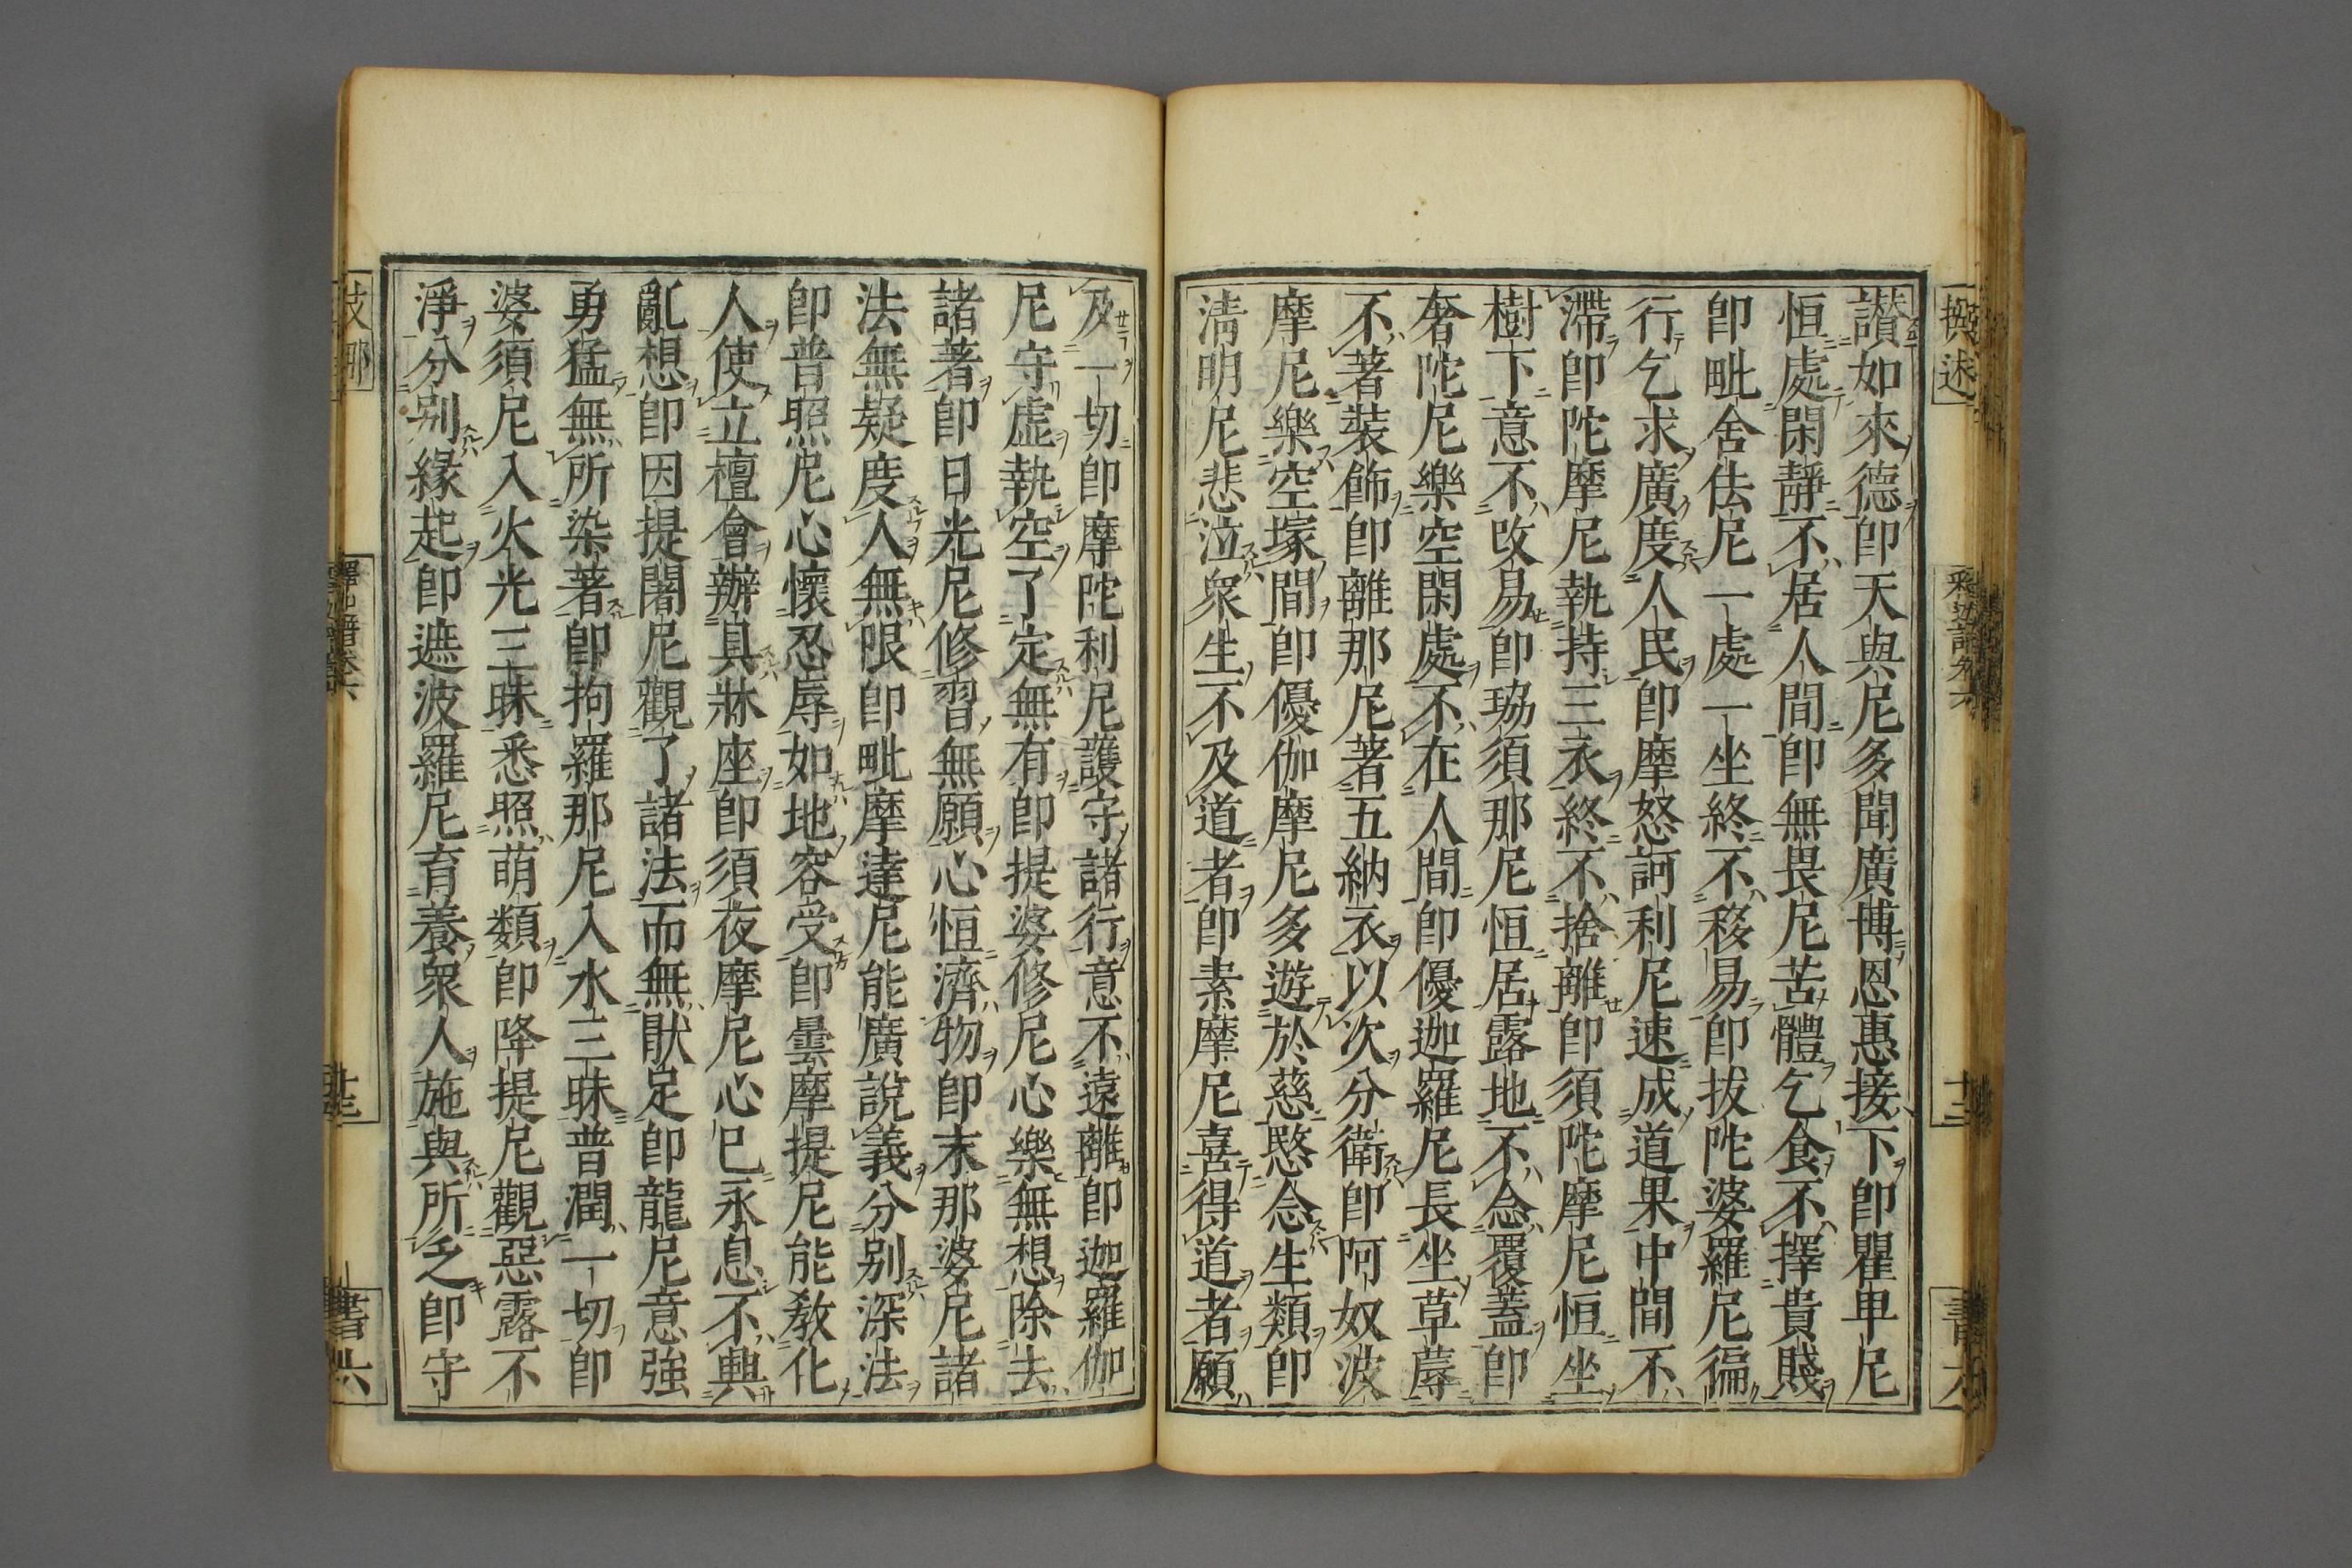 讃如來德卽天與尼多聞廣博恩惠接下卽瞿卑尼
恒處閑靜不居人間卽無畏尼苦體乞食不擇貴賤
卽毗舍佉尼一處一坐終不移易卽拔陀婆羅尼徧
行乞求廣度人民卽摩怒訶利尼速成道果中間不
滯卽陀摩尼執持三衣終不捨離卽須陀摩尼恒坐
樹下意不改易卽珕須那尼恒居露地不念覆蓋卽
奢陀尼樂空閑處不在人間卽優迦羅尼長坐草蓐
不著裝飾卽離那尼著五納衣以次分衛卽阿奴波
摩尼樂空塚間卽優伽摩尼多遊於慈愍念生類卽
淸明尼悲泣衆生不及道者卽素摩尼喜得道者願
及一切卽摩陀利尼護守諸行意不遠離卽迦羅伽
尼守虛執空了定無有卽提婆修尼心樂無想除去
諸著卽日光尼修習無願心恒濟物卽末那婆尼諸
法無疑度人無限卽毗摩達尼能廣說義分別深法
卽普照尼心懷忍辱如地容受卽曇摩提尼能敎化
人使立檀會辦具牀座卽須夜摩尼心已永息不興
亂想卽因提闍尼觀了諸法而無猒足卽龍尼意強
勇猛無所染著卽拘羅那尼入水三昧普潤一切卽
婆須尼入火光三昧悉照萌類卽降提尼觀惡露不
淨分別緣起卽遮波羅尼育養衆人施與所乏卽守
撰述
釋迦譜卷六
十二
書六